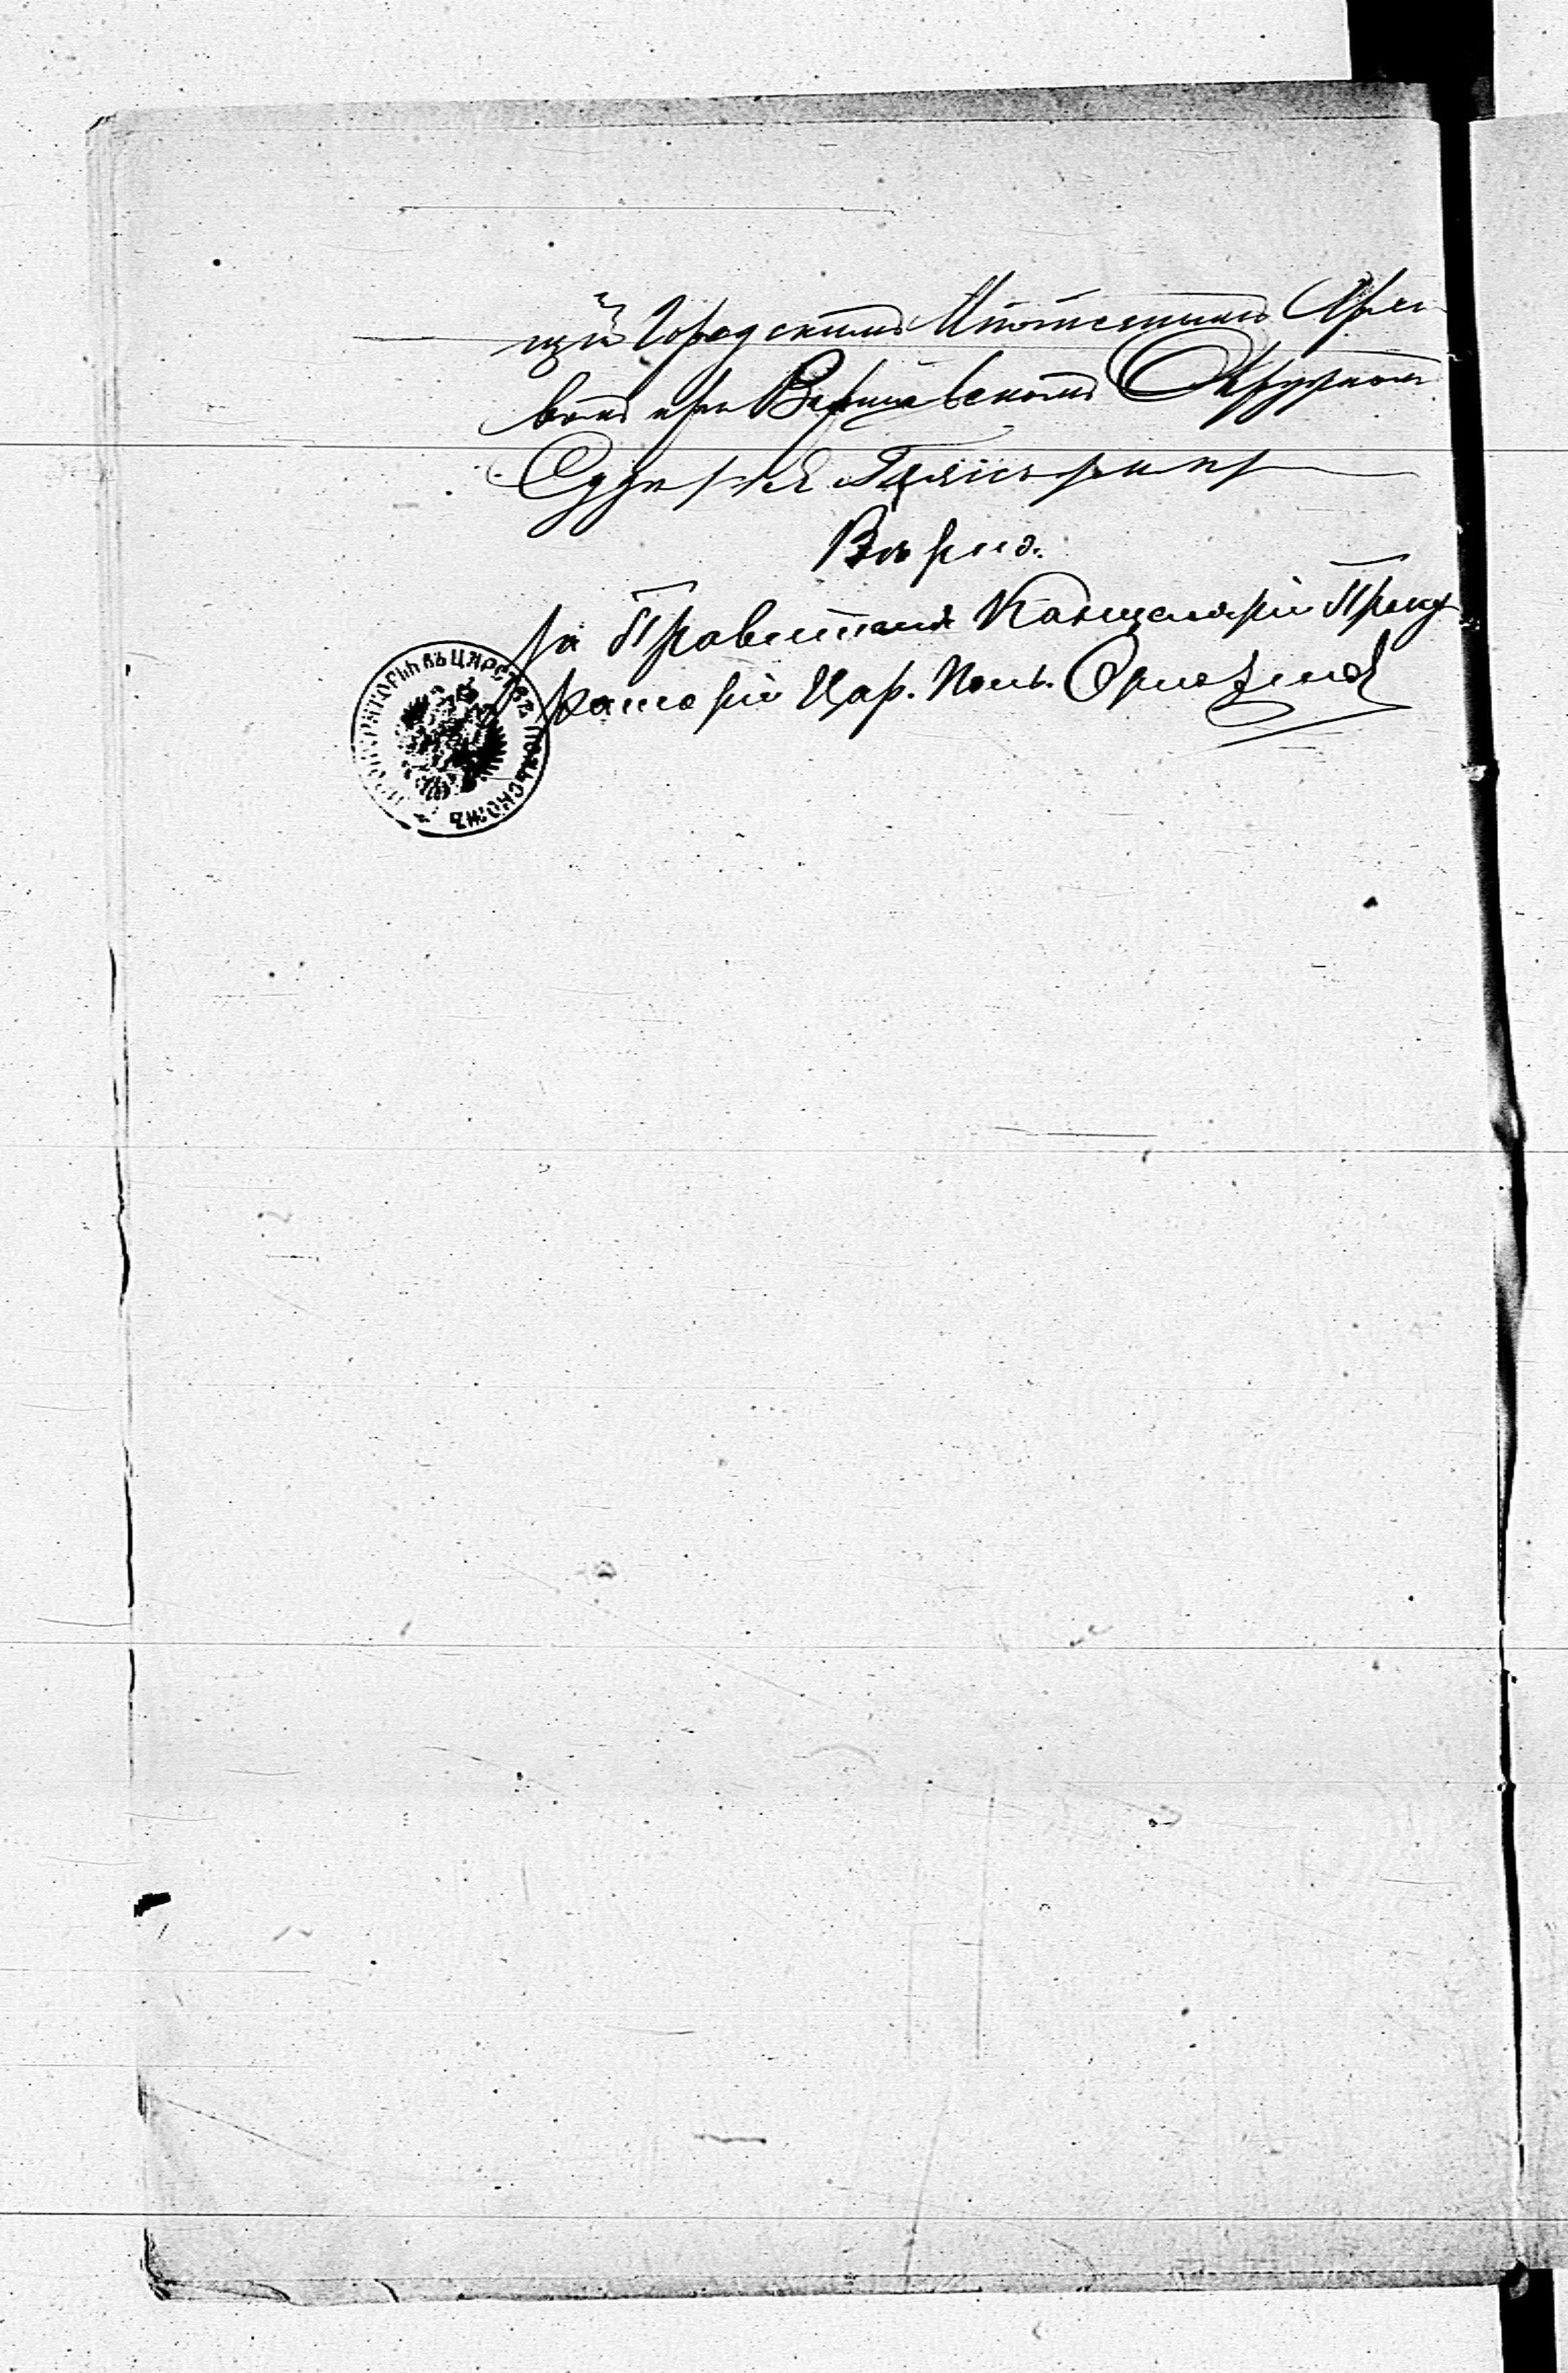 щій Городскимъ Ипотечнымъ Архи-
вомъ при Варшавскомъ Окружномъ
Судѣ
Вѣрно:
За Правителя Канцеляріи Проку-
раторіи Цар. Поль.
ПРОКУРАТОРІЯ ВЪ ЦАРСТВѢ ПОЛЬСКОМЪ